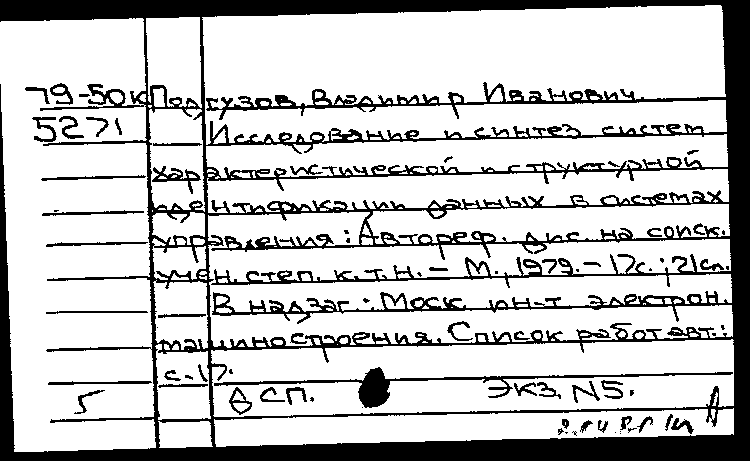 79-50к Подгузов, Владимир Иванович.
5271 Исследование и синтез систем
характеристической и структурной
идентификации данных в системах
управления: Автореф. дис. на соиск.
учен. степ. к.т.н. – М., 1979. – 17с.; 21см.
В надзаг.: Моск. ин-т электрон.
машиностроения. Список работ авт.:
с. 17.
5 ДСП. ЭКЗ. N5.